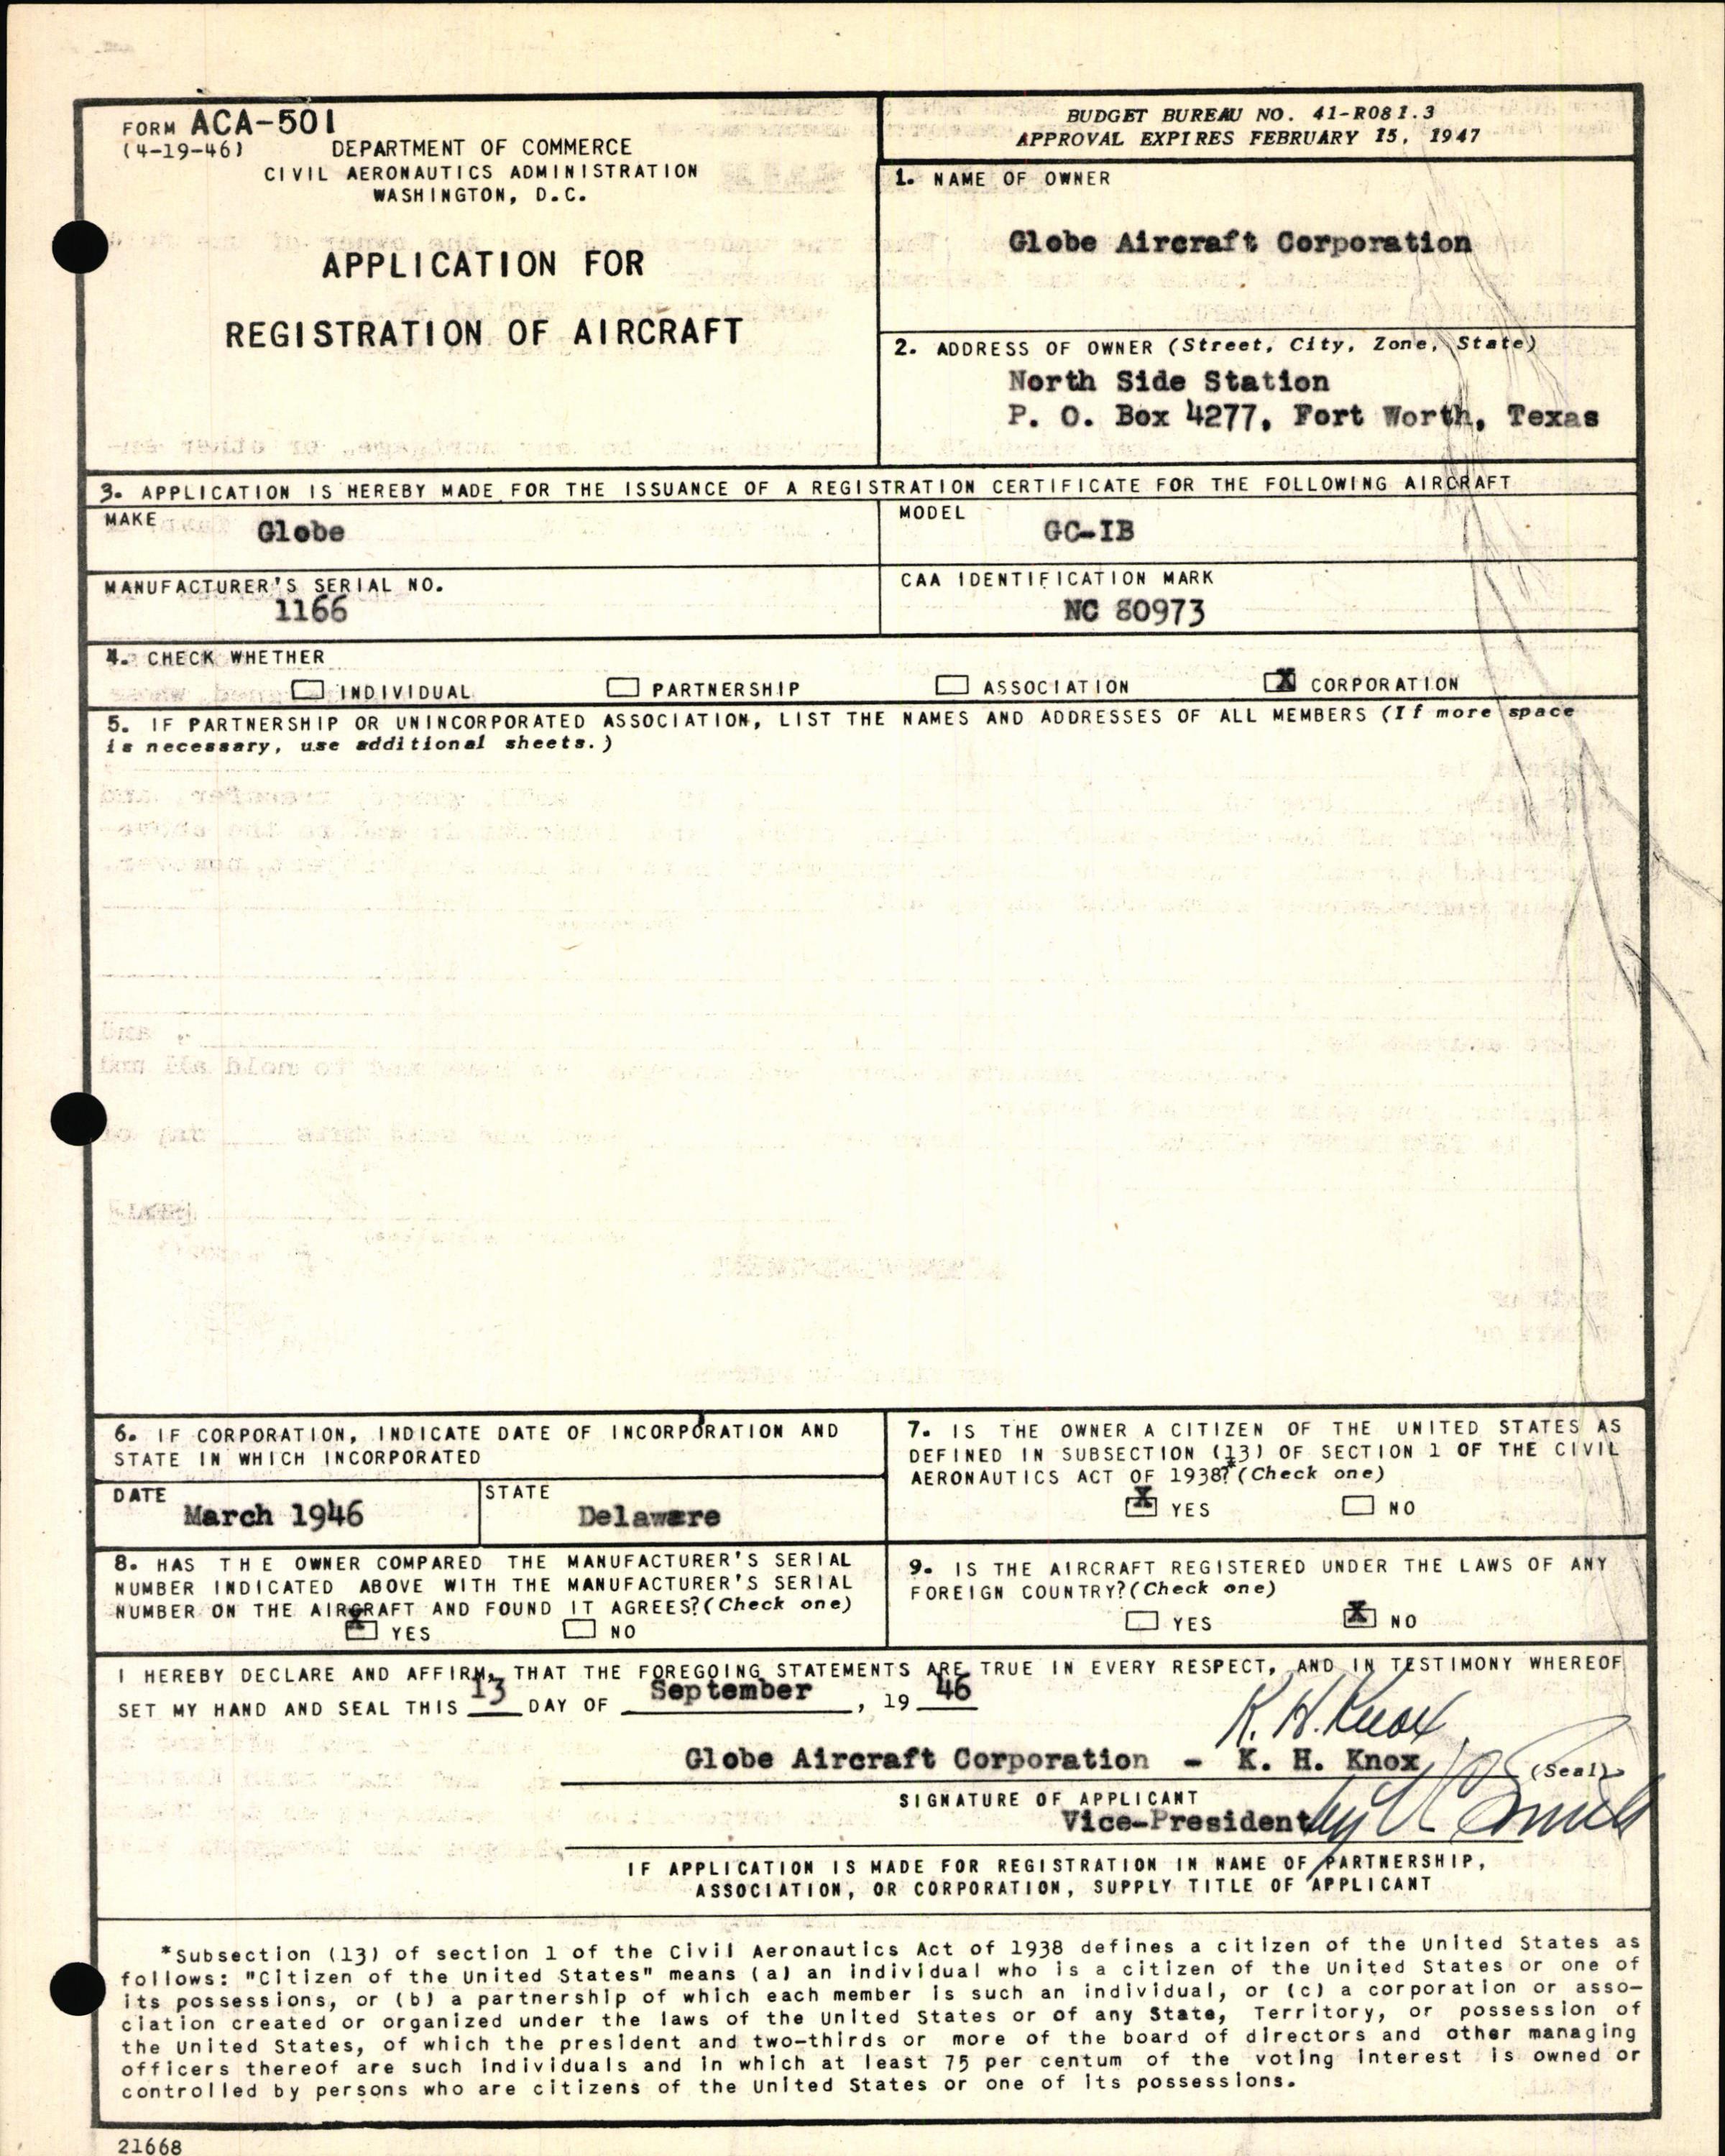 FORM ACA-501
(4-19-46)
DEPARTMENT OF COMMERCE
CIVIL AERONAUTICS ADMINISTRATION
WASHINGTON, D.C.
APPLICATION FOR
REGISTRATION OF AIRCRAFT
BUDGET BUREAU NO. 41-R081.3
APPROVAL EXPIRES FEBRUARY 15, 1947
1. NAME OF OWNER
Globe Aircraft Corporation
2. ADDRESS OF OWNER (Street, City, Zone, State)
North Side Station
P. O. Box 4277, Fort Worth, Texas
3. APPLICATION IS HEREBY MADE FOR THE ISSUANCE OF A REGISTRATION CERTIFICATE FOR THE FOLLOWING AIRCRAFT
MAKE
Globe
MODEL
GC-1B
MANUFACTURER'S SERIAL NO.
1166
CAA IDENTIFICATION MARK
NC 80973
4. CHECK WHETHER
INDIVIDUAL PARTNERSHIP ASSOCIATION X CORPORATION
5. IF PARTNERSHIP OR UNINCORPORATED ASSOCIATION, LIST THE NAMES AND ADDRESSES OF ALL MEMBERS (If more space
is necessary, use additional sheets.)
6. IF CORPORATION, INDICATE DATE OF INCORPORATION AND
STATE IN WHICH INCORPORATED
DATE
March 1946
STATE
Delaware
7. IS THE OWNER A CITIZEN OF THE UNITED STATES AS
DEFINED IN SUBSECTION (13) OF SECTION 1 OF THE CIVIL
AERONAUTICS ACT OF 1938?* (Check one)
X YES NO
8. HAS THE OWNER COMPARED THE MANUFACTURER'S SERIAL
NUMBER INDICATED ABOVE WITH THE MANUFACTURER'S SERIAL
NUMBER ON THE AIRCRAFT AND FOUND IT AGREES? (Check one)
X YES NO
9. IS THE AIRCRAFT REGISTERED UNDER THE LAWS OF ANY
FOREIGN COUNTRY? (Check one)
YES X NO
I HEREBY DECLARE AND AFFIRM, THAT THE FOREGOING STATEMENTS ARE TRUE IN EVERY RESPECT, AND IN TESTIMONY WHEREOF
SET MY HAND AND SEAL THIS 13 DAY OF September, 19 46
K. H. Knox
Globe Aircraft Corporation - K. H. Knox (Seal)
SIGNATURE OF APPLICANT
Vice-President by
IF APPLICATION IS MADE FOR REGISTRATION IN NAME OF PARTNERSHIP,
ASSOCIATION, OR CORPORATION, SUPPLY TITLE OF APPLICANT
*Subsection (13) of section 1 of the Civil Aeronautics Act of 1938 defines a citizen of the United States as
follows: "Citizen of the United States" means (a) an individual who is a citizen of the United States or one of
its possessions, or (b) a partnership of which each member is such an individual, or (c) a corporation or asso-
ciation created or organized under the laws of the United States or of any State, Territory, or possession of
the United States, of which the president and two-thirds or more of the board of directors and other managing
officers thereof are such individuals and in which at least 75 per centum of the voting interest is owned or
controlled by persons who are citizens of the United States or one of its possessions.
21668